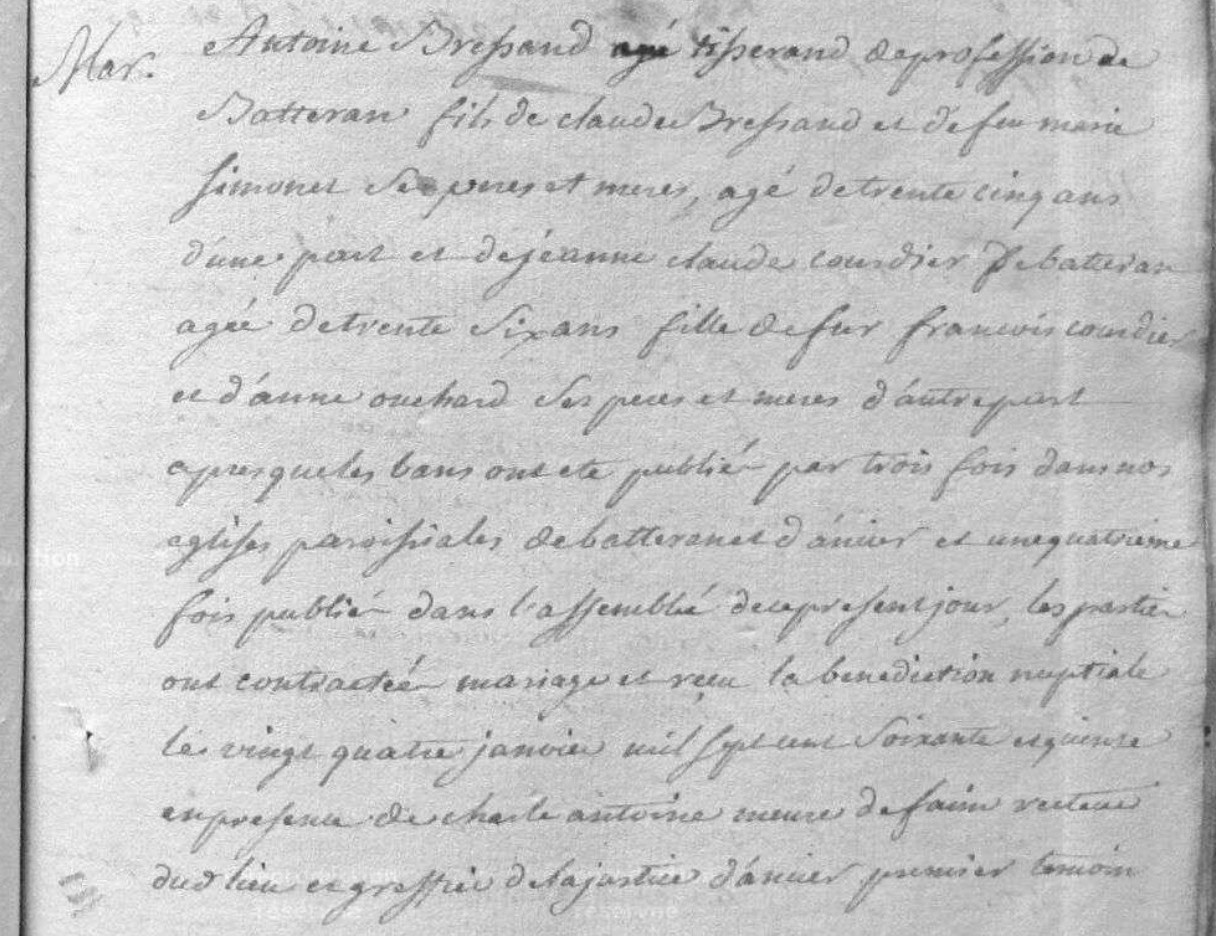 Mar. Antoine Bressand agé tisserand de profession de
Batteran fils de claude Bressand et de feu marie
simonet Ses peres et meres, agé de trente cinq ans
d'une part et de jéanne claude courdier De batteran
agée de trente Six ans fille de fur francois courdier
et d'ánne ouchard Ses peres et meres d'áutre part
apres que les bans ont ete publiér par trois fois dans nos
eglises paroissiales de batteran et d'ánier et une quatrieme
fois publiér dans l'assemblé de ce present jour, les partier
ont contractéér mariage et reçu la benediction nuptiale
le vingt quatre janvier mil sept cent Soixante et quinse
en presence de charle antoine recteur
dud lieu et greffier de la justice d'ánier premier temoin